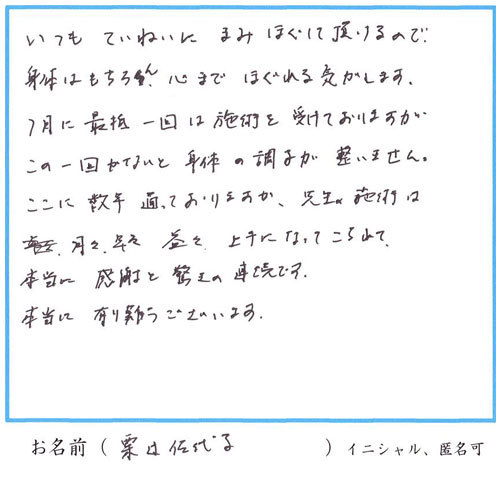 いつも ていねいに もみほぐして頂けるので、
身体はもちろん、心まで ほぐれる気がします。
1月に 最低 一回は 施術を 受けておりますが
この一回がないと 身体の調子が 整いません。
ここに 数年 通っておりますが、先生の施術は
月々、年々 益々 上手になって こられて、
本当に 感謝と 驚きの 連続です。
本当に 有り難うございます。
お名前（ 佐代子 ）イニシャル、匿名可